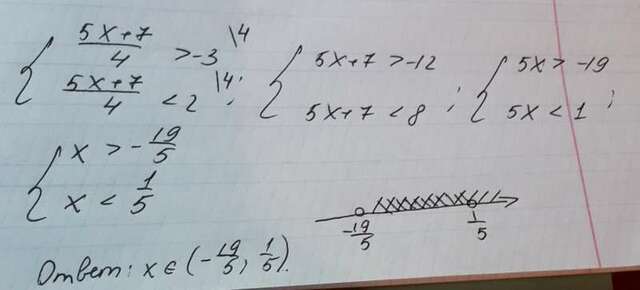 { (5x+7)/4 > -3 \4 ; { 5x+7 > -12 ; { 5x > -19 ;
{ (5x+7)/4 < 2 \4 ; { 5x+7 < 8 ; { 5x < 1 ;
{ x > -19/5
{ x < 1/5
-19/5 1/5
Ответ: x ∈ (-19/5; 1/5).